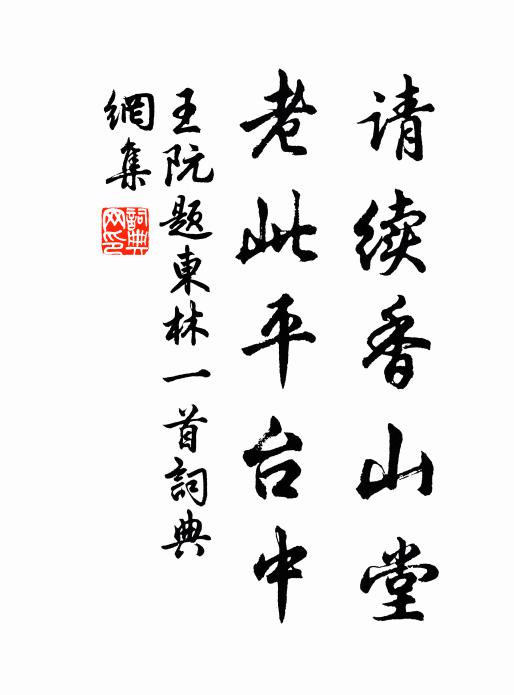 请续香山堂
老此平台中
王阮题東林一首詞典
網集
詞典
网印